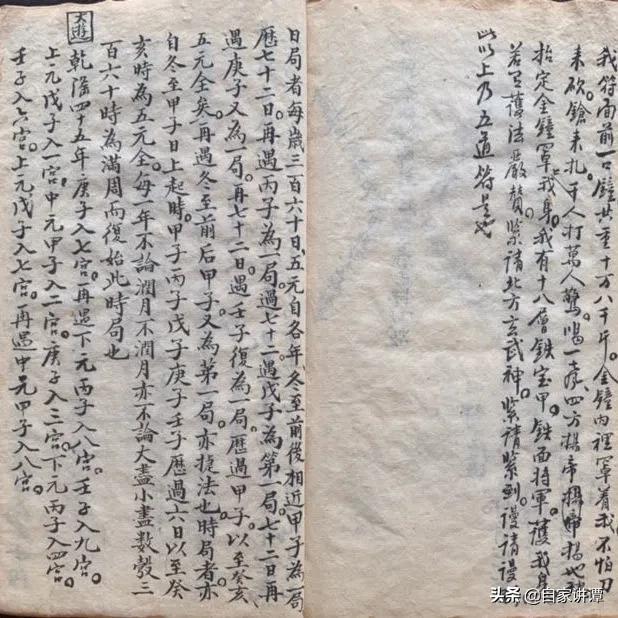 我符面前一口鐘共重十万八千斤。金鐘内裡罩着我不怕刀
来砍鎗来扎。千人打萬人驚喝一声四方揭帝揭帝揭地
抬定金鐘罩我身。我有十八層鉄宝甲。鉄面將軍護我身
若有護法嚴贊。緊請北方玄武神。緊請緊到謾請謾
此以上乃五道符是也
日局者每歲三百六十日五元自各年冬至前後相近甲子為一局
歷七十二日。再遇丙子為一局過七十二遇戊子為第一局。七十二日再
遇庚子又為一局。再七十二日。遇壬子復為一局歷過甲子。以至癸亥
五元全矣。再遇冬至前后甲子又為第一局。亦捷法也時局者亦
自冬至甲子日上起時。甲子丙子戊子庚子壬子歷過六日以至癸
亥時為五元全。每一年不論潤月不潤月亦不論大盡小盡數彀三
百六十時為滿周而復始此時局也
大遊
乾隆四十五年庚子入七宮。再遇下元丙子入八宮。壬子入九宮。
上元戊子入一宮。中元甲子入二宮。庚子入三宮。下元丙子入四宮。
壬子入六宮。上元戊子入七宮。再遇中元甲子入八宮。
头条 @自家讲谭